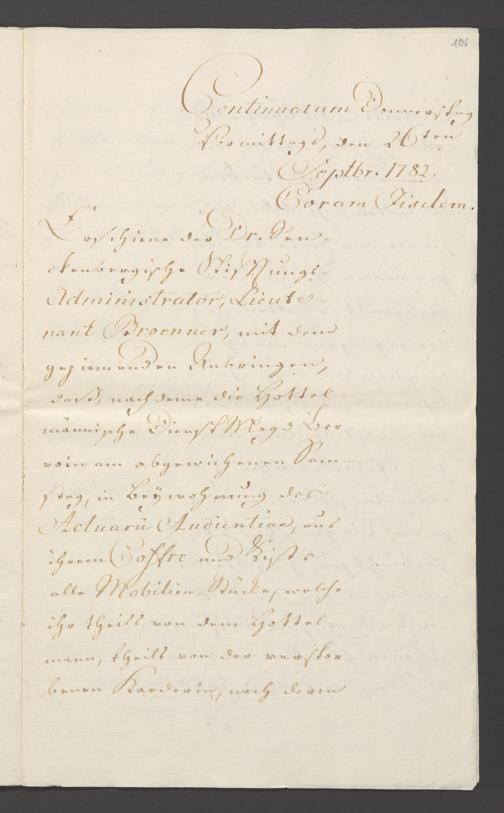 106
Continuatum Donnerstag
Vormittags, den 26ten
Septbr. 1782.
Coram Iisdem.
Erschiene der Dr. Sen-
ckenbergische Stiftungs-
Administrator, Lieute-
nant Broenner, mit dem
geziemenden Anbringen,
daß, nachdeme die Hottel
männische Dienst Magd
am abgewichenen Sam-
stag, in Beywohnung des
Actuarii Audientiae, aus
ihrem Coffre und Kiste
alle Mobilien-Stücke, welche
ihr theils von dem Hottel
mann, theils von der verstor
benen, nach deren